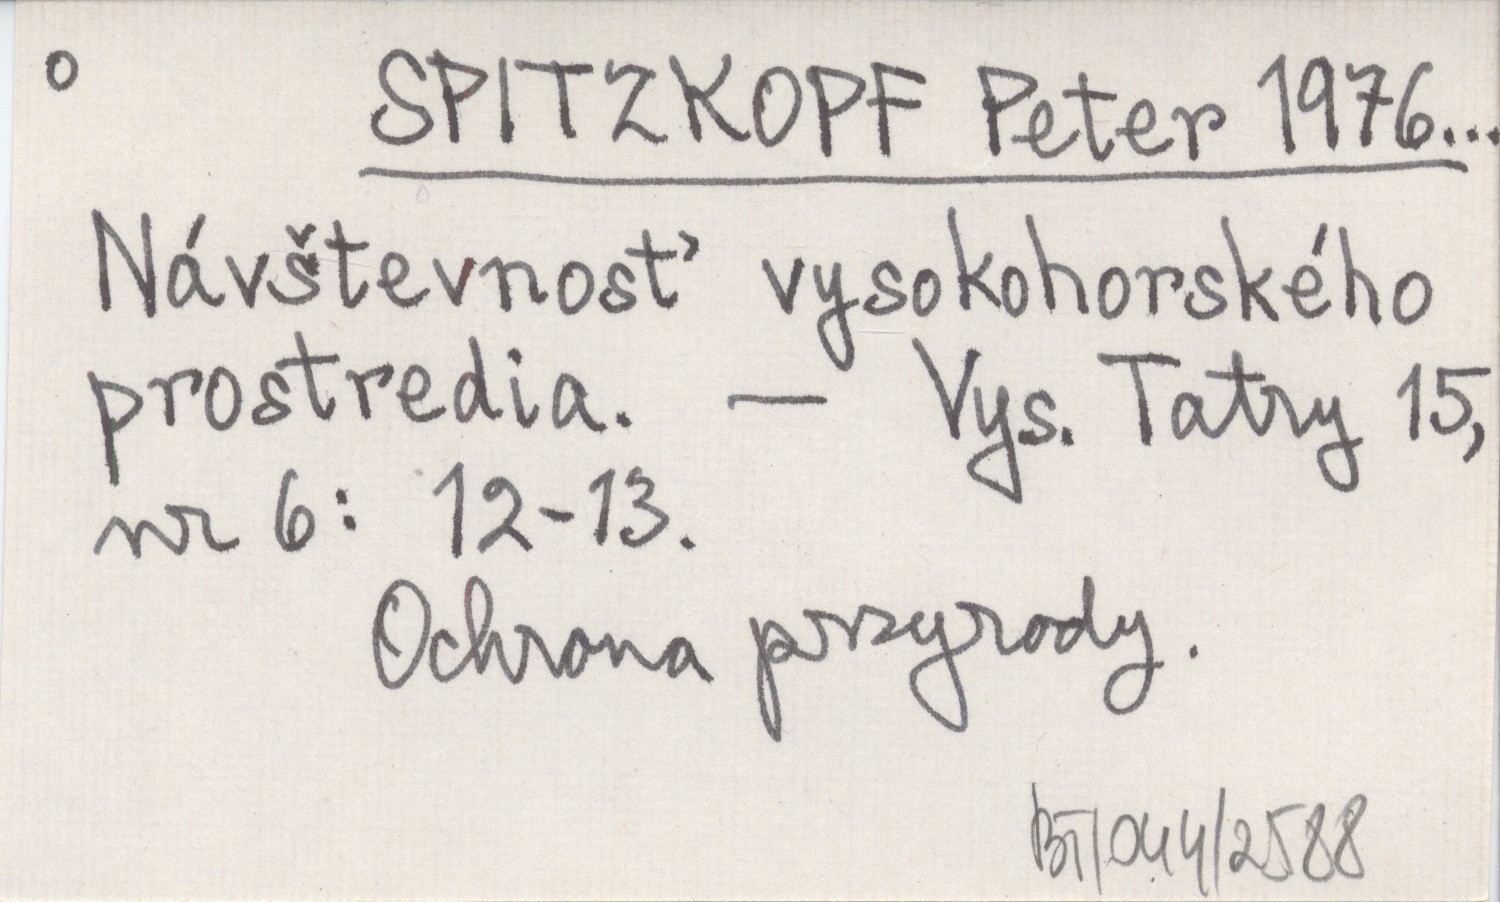 o SPITZKOPF Peter 1976...
Návštevnosť vysokohorského
prostredia. — Vys. Tatry 15,
nr 6: 12-13.
Ochrona przyrody.
BT/044/2588